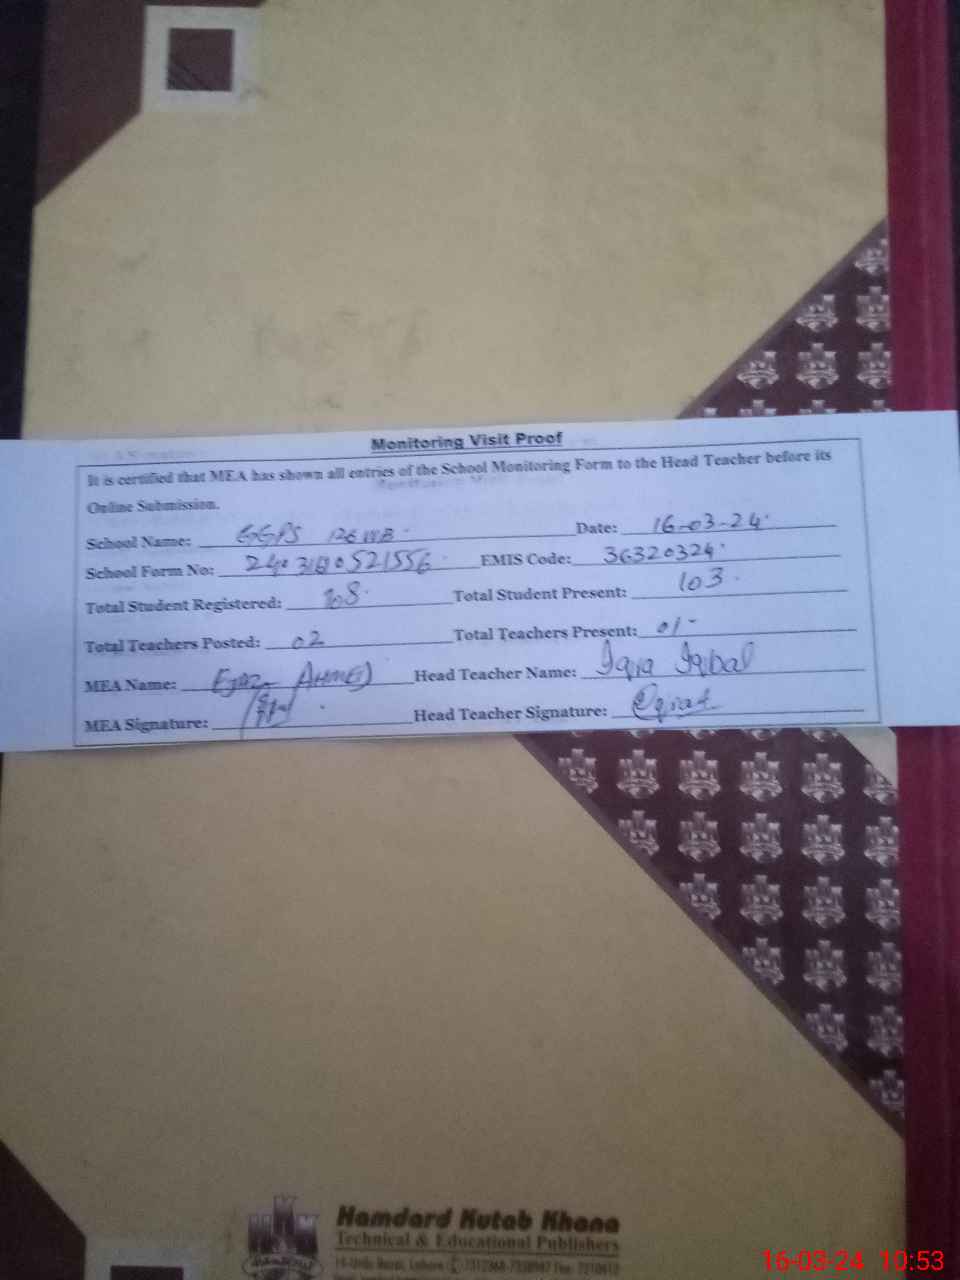 Monitoring Visit Proof
It is certified that MEA has shown all entries of the School Monitoring Form to the Head Teacher before its
Online Submission.
School Name: GGPS 126 WB Date: 16-03-24
School Form No: EMIS Code: 36320324
Total Student Registered: 108 Total Student Present: 103
Total Teachers Posted: 02 Total Teachers Present: 01
MEA Name: Ejaz Ahmed Head Teacher Name: Iqra Iqbal
MEA Signature: Head Teacher Signature:
Hamdard Kutab Khana
Technical & Educational Publishers
16-03-24 10:53